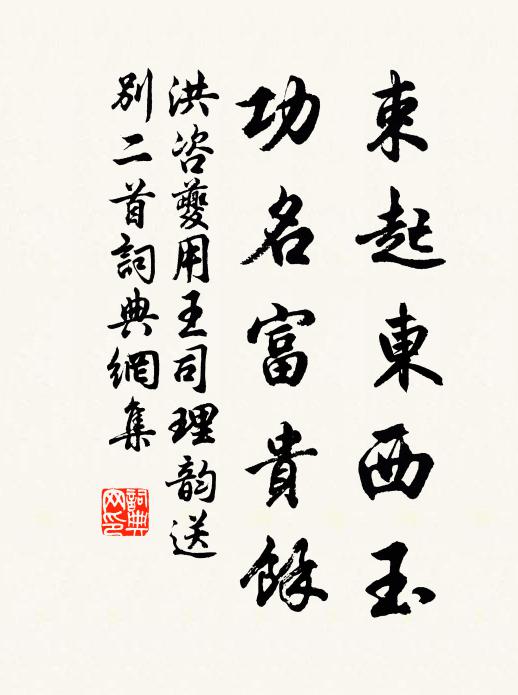 束起東西玉
功名富貴餘
洪咨夔用王司理韵送
別二首詞典網集
詞典
网印